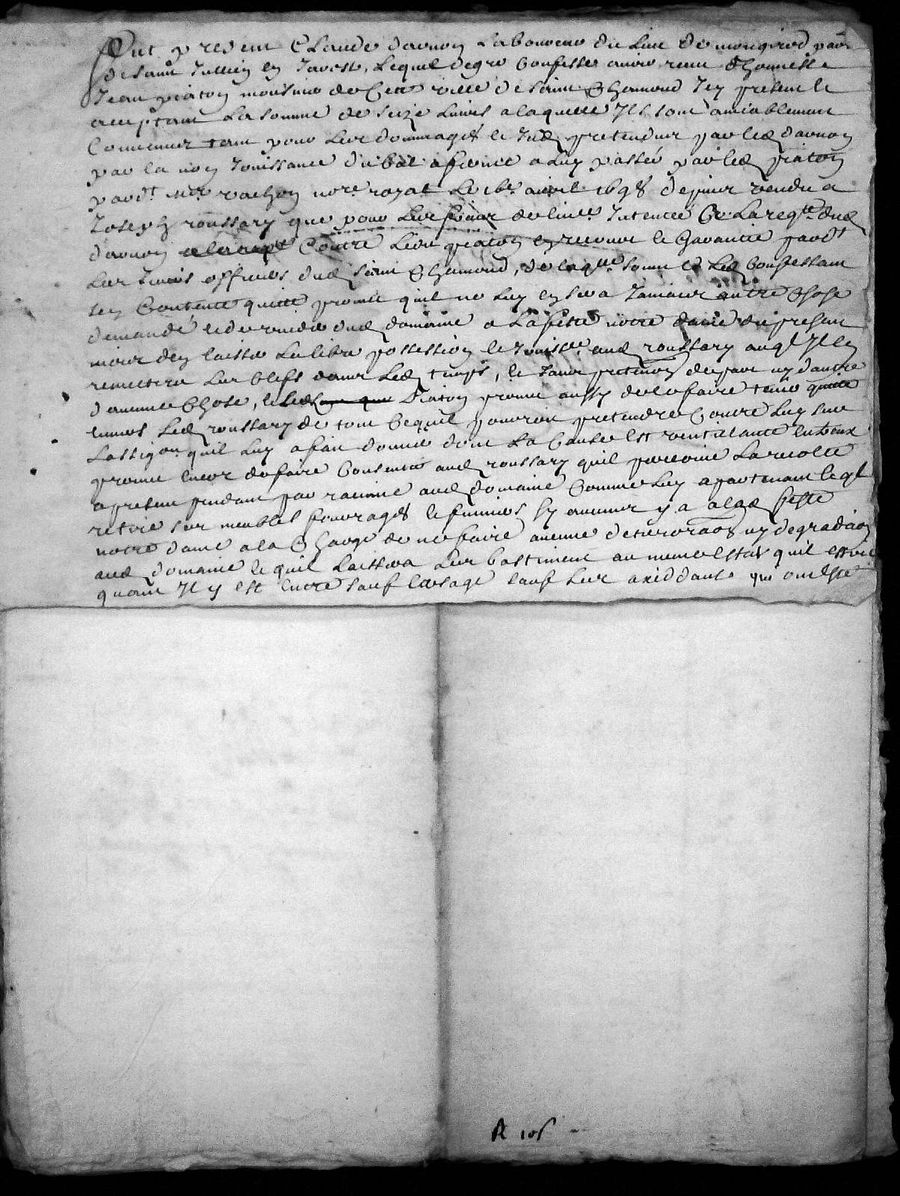 fut present Claude davnon laboureur du lieu de mongirod parr
de saint Jullien en Jarest, lequel de gre confesse avoir receu d'honneste
Jean piaton de cette ville de saint Chamond Icy present et
acceptant la somme de seize livres a laquelle Ils sont amiablement
convenus tant pour les dommages et Int pretendus par led davnon
par la non Jouissance du bail a ferme a luy passée par led piaton
pardt Me vachon nore royal le avril 1698 depuis vendu a
Joseph roussary que pour les frais de linstance Intentée a la reqte dud
davnon contre led piaton en recours et garantie pardt
les officiers dud saint Chamond, de laqlle somme led confessant
sen contente quitte promet quil ne luy en sera Jamais autre chose
demandé dud domaine a la feste notre dame du present
mois den laisser la libre possession et Jouissce aud roussary auql Il
remettra les bleds dans led temps, et sans pretendre de part ny dautre
daucune chose, led piaton promet aussy de le faire tenir quitte
envers led roussary de tout ce quil pourroit pretendre contre luy sur
lassignaon quil luy a fait donner dont la cause est
promet encor de faire consentir aud roussary quil percoive la recolte
a present pendant par racine aud domaine comme luy apartenant et
retire ses meubles fourrages et fumiers sy aucuns y a a lad feste
notre dame a la charge de ne faire aucune deterioraon ny degradaon
aud domaine et quil laissera les bastiment au mesme estat quil estoit
quand Il y est entré sauf lusage sauf les acciddants qui ont esté
R 105